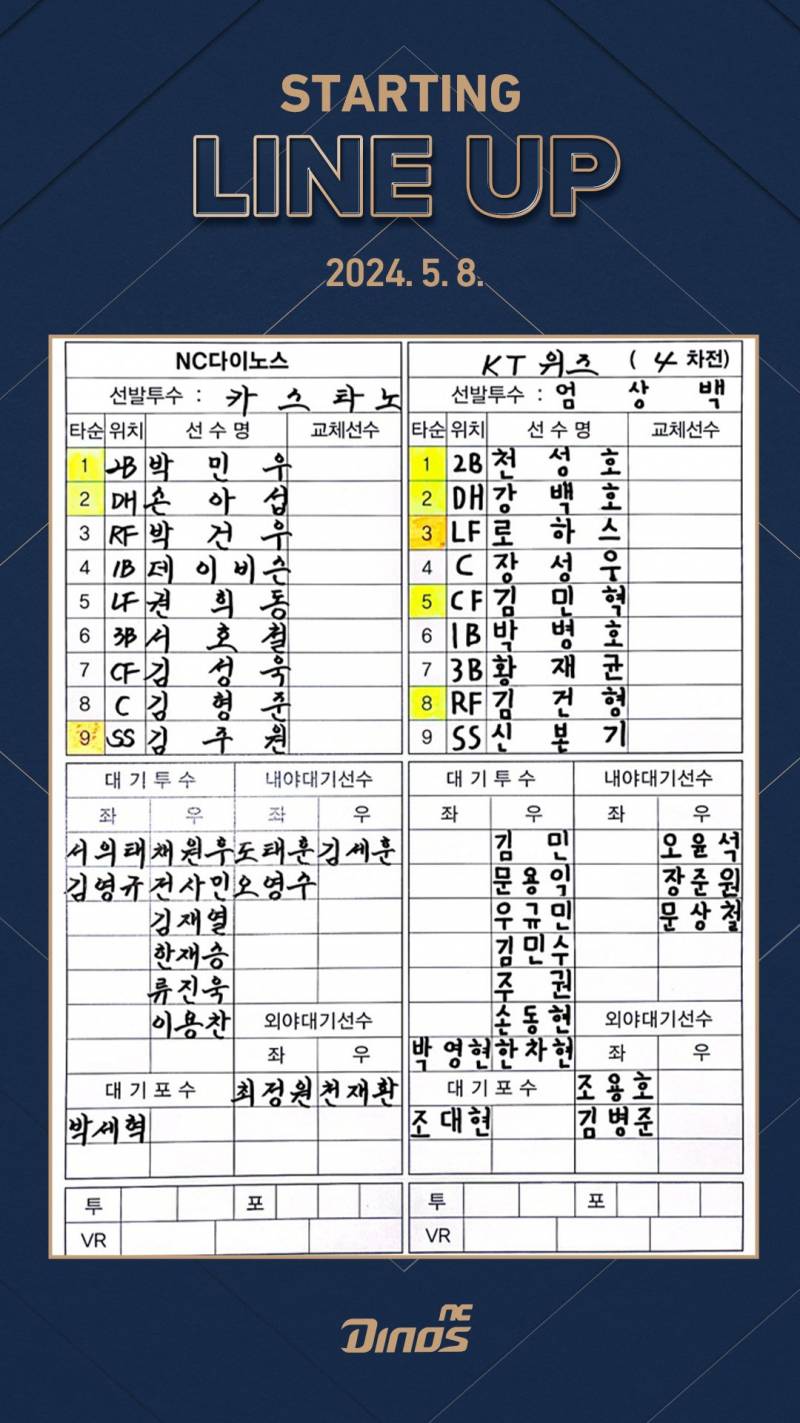 STARTING
LINE UP
2024. 5. 8.
NC다이노스
선발투수 : 카스타노
타순 위치 선수명 교체선수
1 2B 박민우
2 DH 손아섭
3 RF 박건우
4 1B 데이비슨
5 LF 권희동
6 3B 서호철
7 CF 김성욱
8 C 김형준
9 SS 김주원
대기투수 내야대기선수
좌 우 좌 우
서의태 채원후 도태훈 김세훈
김영규 전사민 오영수
김재열
한재승
류진욱
이용찬 외야대기선수
좌 우
대기포수 최정원 천재환
박세혁
투 포
VR
KT 위즈 ( 4 차전)
선발투수 : 엄상백
타순 위치 선수명 교체선수
1 2B 천성호
2 DH 강백호
3 LF 로하스
4 C 장성우
5 CF 김민혁
6 1B 박병호
7 3B 황재균
8 RF 김건형
9 SS 신본기
대기투수 내야대기선수
좌 우 좌 우
김민 오윤석
문용익 장준원
우규민 문상철
김민수
주권
손동현 외야대기선수
박영현 한차현 좌 우
대기포수 조용호
조대현 김병준
투 포
VR
nc
Dinos